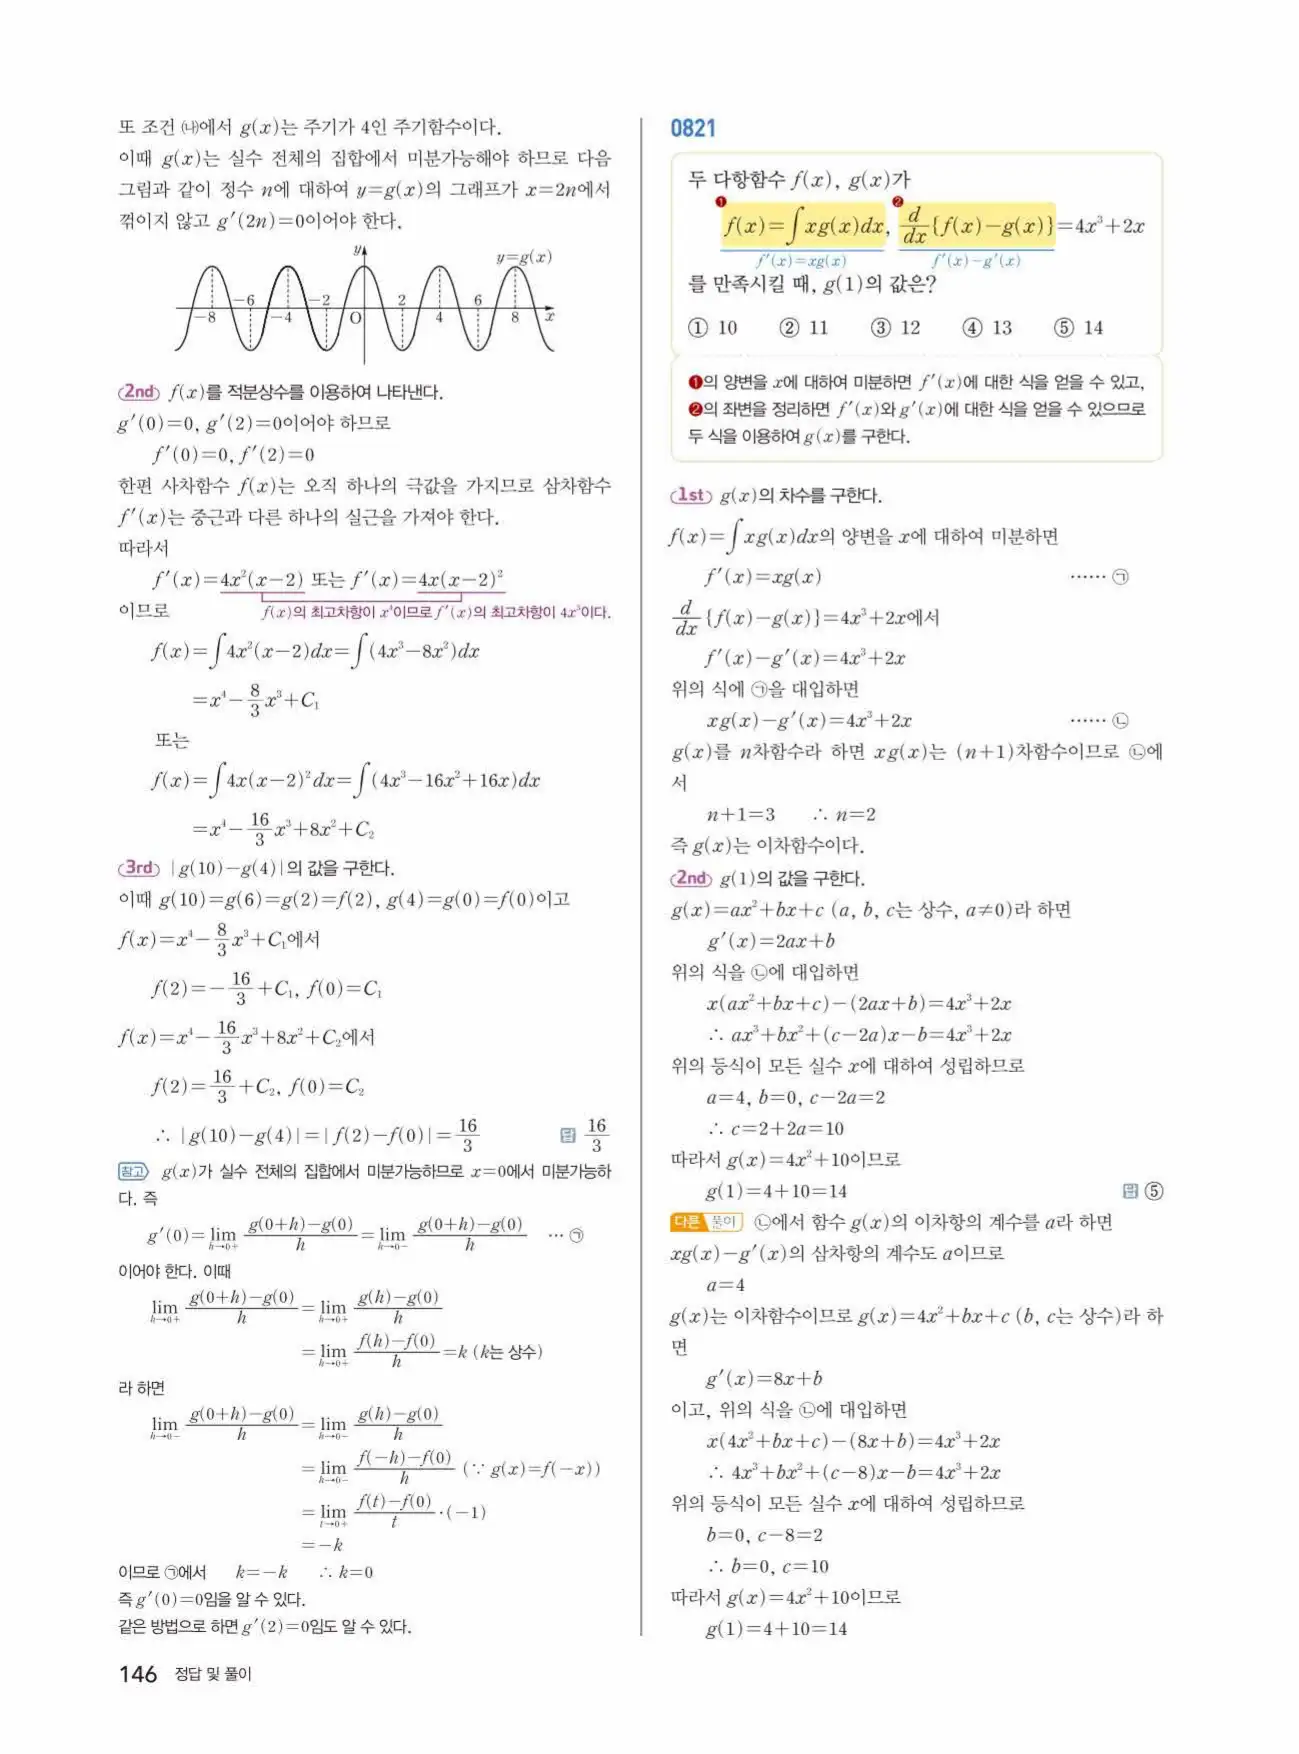 또 조건 ㈏에서 g(x)는 주기가 4인 주기함수이다.
이때 g(x)는 실수 전체의 집합에서 미분가능해야 하므로 다음
그림과 같이 정수 n에 대하여 y=g(x)의 그래프가 x=2n에서
꺾이지 않고 g′(2n)=0이어야 한다.
y
y=g(x)
-8 -6 -4 -2 O 2 4 6 8 x
2nd f(x)를 적분상수를 이용하여 나타낸다.
g′(0)=0, g′(2)=0이어야 하므로
f′(0)=0, f′(2)=0
한편 사차함수 f(x)는 오직 하나의 극값을 가지므로 삼차함수
f′(x)는 중근과 다른 하나의 실근을 가져야 한다.
따라서
f′(x)=4x²(x-2) 또는 f′(x)=4x(x-2)²
이므로 f(x)의 최고차항이 x⁴이므로 f′(x)의 최고차항이 4x³이다.
f(x)=∫4x²(x-2)dx=∫(4x³-8x²)dx
=x⁴-8/3x³+C₁
또는
f(x)=∫4x(x-2)²dx=∫(4x³-16x²+16x)dx
=x⁴-16/3x³+8x²+C₂
3rd |g(10)-g(4)|의 값을 구한다.
이때 g(10)=g(6)=g(2)=f(2), g(4)=g(0)=f(0)이고
f(x)=x⁴-8/3x³+C₁에서
f(2)=-16/3+C₁, f(0)=C₁
f(x)=x⁴-16/3x³+8x²+C₂에서
f(2)=16/3+C₂, f(0)=C₂
∴ |g(10)-g(4)|=|f(2)-f(0)|=16/3 답 16/3
참고 g(x)가 실수 전체의 집합에서 미분가능하므로 x=0에서 미분가능하
다. 즉
g′(0)=lim h→0+ g(0+h)-g(0)/h=lim h→0- g(0+h)-g(0)/h … ㉠
이어야 한다. 이때
lim h→0+ g(0+h)-g(0)/h=lim h→0+ g(h)-g(0)/h
=lim h→0+ f(h)-f(0)/h=k (k는 상수)
라 하면
lim h→0- g(0+h)-g(0)/h=lim h→0- g(h)-g(0)/h
=lim h→0- f(-h)-f(0)/h (∵ g(x)=f(-x))
=lim t→0+ f(t)-f(0)/t·(-1)
=-k
이므로 ㉠에서 k=-k ∴ k=0
즉 g′(0)=0임을 알 수 있다.
같은 방법으로 하면 g′(2)=0임도 알 수 있다.
146 정답 및 풀이
0821
두 다항함수 f(x), g(x)가
❶ f(x)=∫xg(x)dx, ❷ d/dx{f(x)-g(x)}=4x³+2x
f′(x)=xg(x) f′(x)-g′(x)
를 만족시킬 때, g(1)의 값은?
① 10 ② 11 ③ 12 ④ 13 ⑤ 14
❶의 양변을 x에 대하여 미분하면 f′(x)에 대한 식을 얻을 수 있고,
❷의 좌변을 정리하면 f′(x)와 g′(x)에 대한 식을 얻을 수 있으므로
두 식을 이용하여 g(x)를 구한다.
1st g(x)의 차수를 구한다.
f(x)=∫xg(x)dx의 양변을 x에 대하여 미분하면
f′(x)=xg(x) …… ㉠
d/dx{f(x)-g(x)}=4x³+2x에서
f′(x)-g′(x)=4x³+2x
위의 식에 ㉠을 대입하면
xg(x)-g′(x)=4x³+2x …… ㉡
g(x)를 n차함수라 하면 xg(x)는 (n+1)차함수이므로 ㉡에
서
n+1=3 ∴ n=2
즉 g(x)는 이차함수이다.
2nd g(1)의 값을 구한다.
g(x)=ax²+bx+c (a, b, c는 상수, a≠0)라 하면
g′(x)=2ax+b
위의 식을 ㉡에 대입하면
x(ax²+bx+c)-(2ax+b)=4x³+2x
∴ ax³+bx²+(c-2a)x-b=4x³+2x
위의 등식이 모든 실수 x에 대하여 성립하므로
a=4, b=0, c-2a=2
∴ c=2+2a=10
따라서 g(x)=4x²+10이므로
g(1)=4+10=14 답 ⑤
다른 풀이 ㉡에서 함수 g(x)의 이차항의 계수를 a라 하면
xg(x)-g′(x)의 삼차항의 계수도 a이므로
a=4
g(x)는 이차함수이므로 g(x)=4x²+bx+c (b, c는 상수)라 하
면
g′(x)=8x+b
이고, 위의 식을 ㉡에 대입하면
x(4x²+bx+c)-(8x+b)=4x³+2x
∴ 4x³+bx²+(c-8)x-b=4x³+2x
위의 등식이 모든 실수 x에 대하여 성립하므로
b=0, c-8=2
∴ b=0, c=10
따라서 g(x)=4x²+10이므로
g(1)=4+10=14